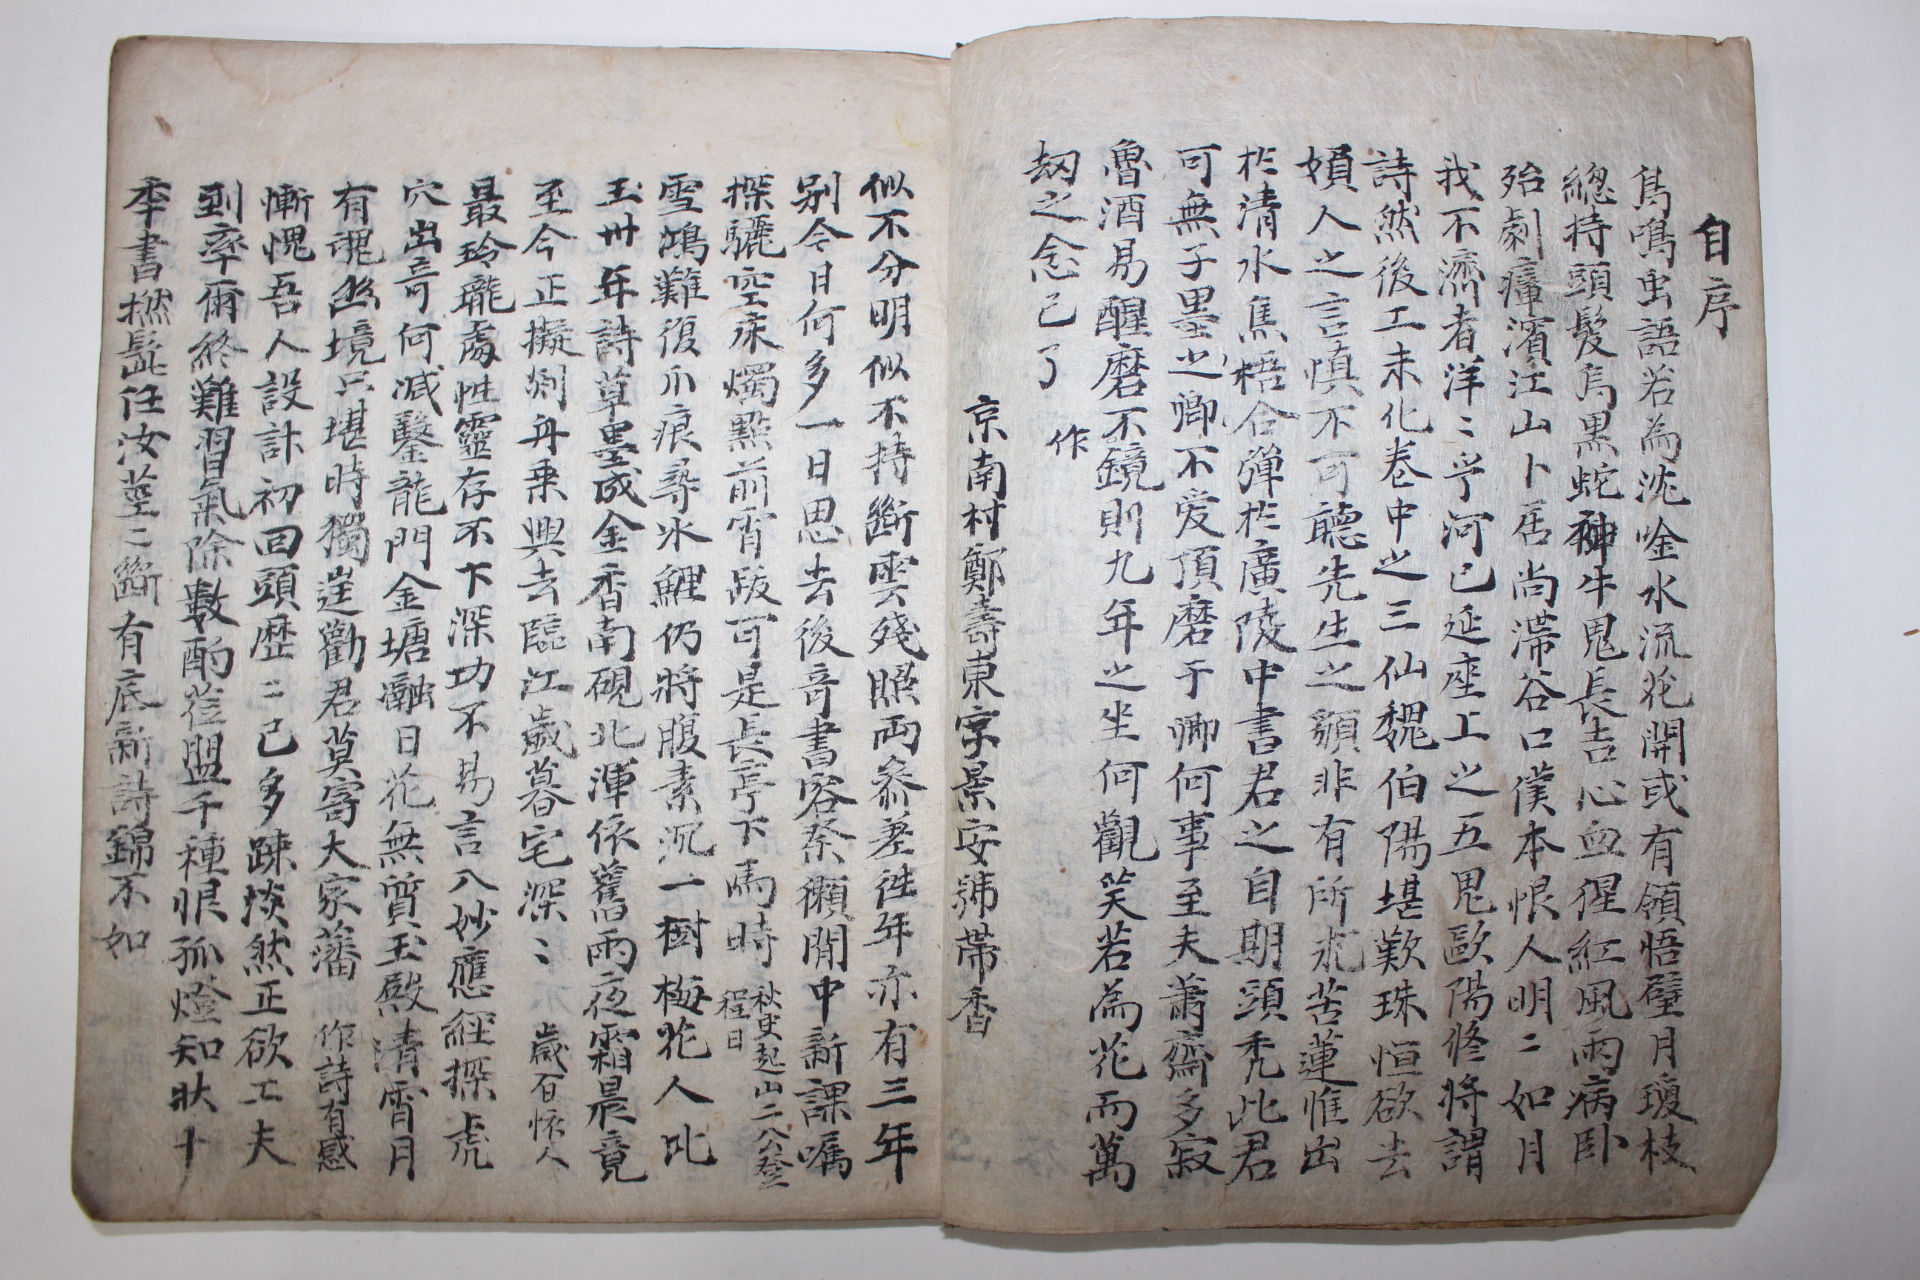 自序
鳥鳴虫語若為沈唫水流花開或有領悟璧月瓊枝
總持頭髮烏黑蛇神牛鬼長吉心血猩紅風雨病卧
殆劇瘴濱江山卜居尚滯谷口僕本恨人明〻如月
我不濟者洋〻乎河已延座上之五鬼歐陽修將謂
詩然後工未化卷中之三仙魏伯陽堪歎珠恒欲去
娟人之言慎不可聽先生之額非有所求苦蓮惟出
於清水焦梧合彈於廣陵中書君之自期頭禿此君
可無子墨之卿不愛頂磨于卿何事至夫蕭齋多寂
魯酒易醒磨不鏡則九年之坐何觀笑若為花而萬
劫之念已了 作
京南村鄭壽東字景安號帶香
似不分明似不持斷雲殘照兩參差徃年亦有三年
別今日何多一日思去後奇書容祭獺閒中新課囑
探驪空床燭點前宵跋可是長亭下馬時 秋史起山二公登
程日
雪鴻難復爪痕尋氷鯉仍將腹素沉一樹梅花人比
玉卅年詩草墨成金香南硯北渾依舊雨夜霜晨竟
至今正擬剡舟乗興去臨江歲暮宅深〻 歲百懷人
最玲瓏處性靈存不下深功不易言八妙應經探虎
穴出奇何減鑿龍門金塘融日花無質玉殿清宵月
有魂幽境只堪時獨造勸君莫寄大家藩 作詩有感
慚愧吾人設計初回頭歷〻已多踈淡然正欲工夫
到率爾終難習氣除數酌花盟千種恨孤燈知狀十
季書撚髭任汝莖〻斷有底新詩錦不如